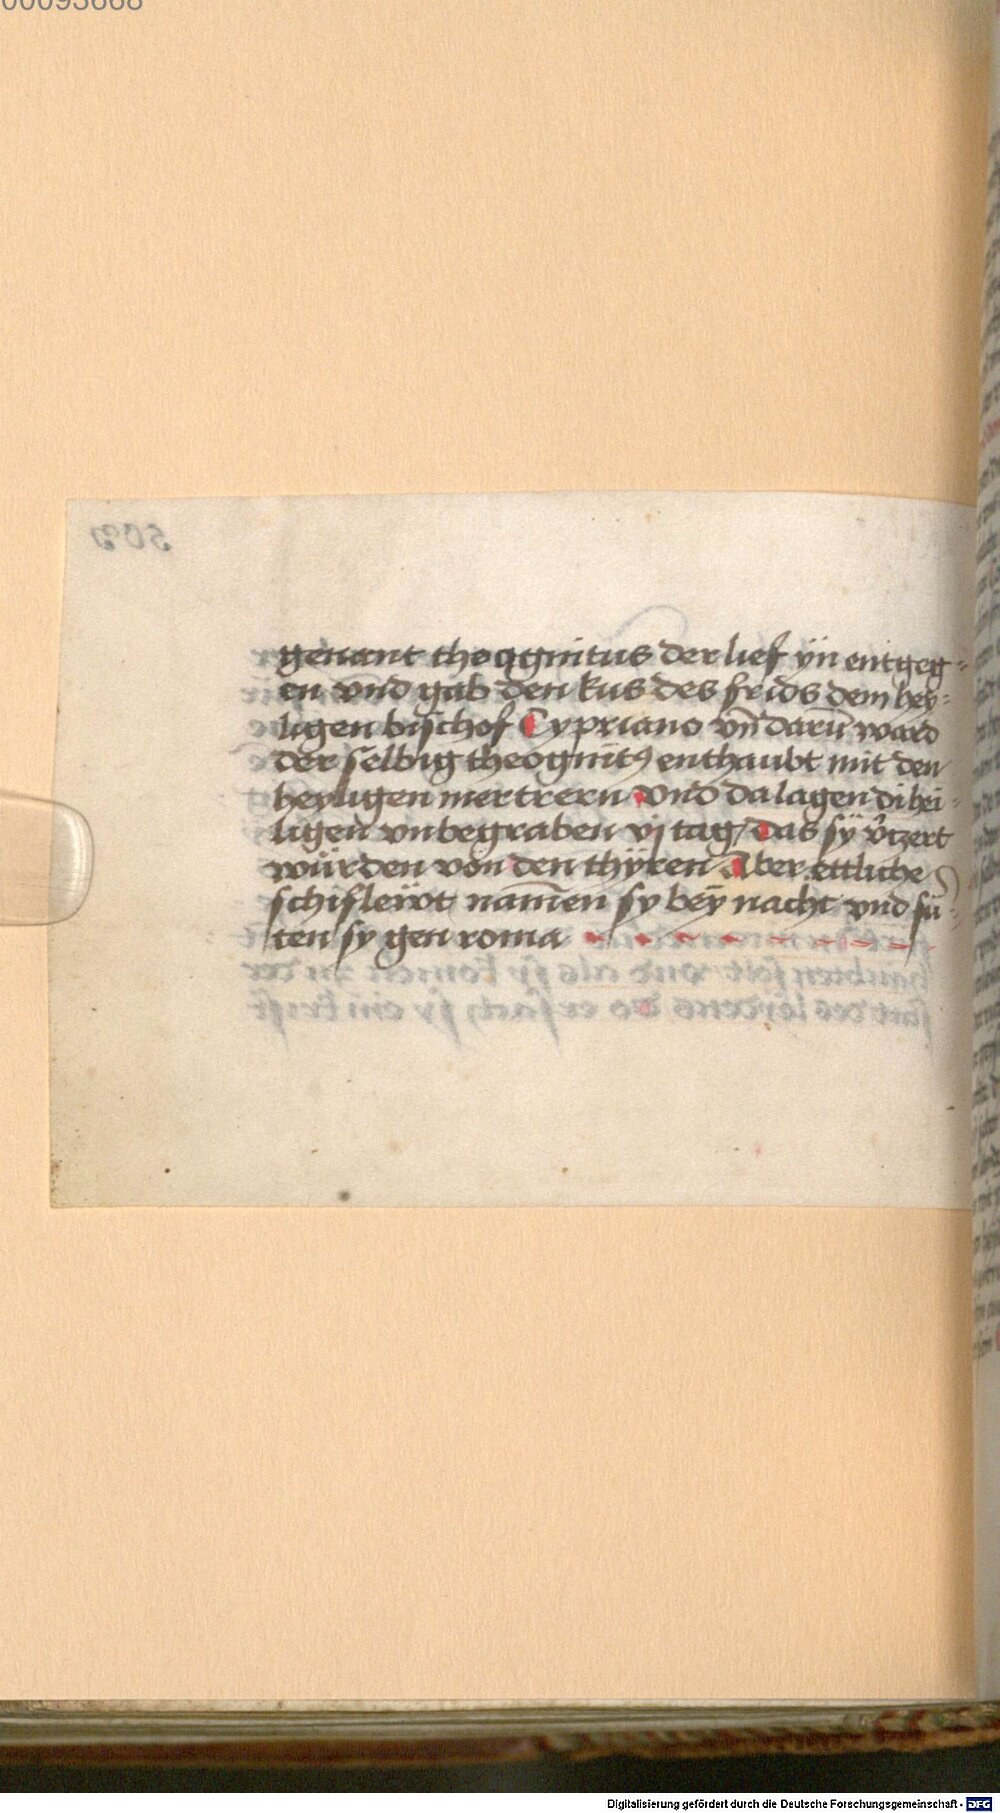 00093668
genant theognitus der lief yn entgeg-
en vnd gab den kus des frids dem hey-
ligen bischof Cypriano vn̄ darū ward
der selbig theognitꝰ enthaubt mit den
heyligen mertrern vnd da lagen di hei-
ligen vnbegraben vj tag / das sÿ v̄tzert
würden von den thÿren Aber ettliche
schifleẅt nam̄en sy beÿ nacht vnd fü-
ten sy gen roma
Digitalisierung gefördert durch die Deutsche Forschungsgemeinschaft - DFG